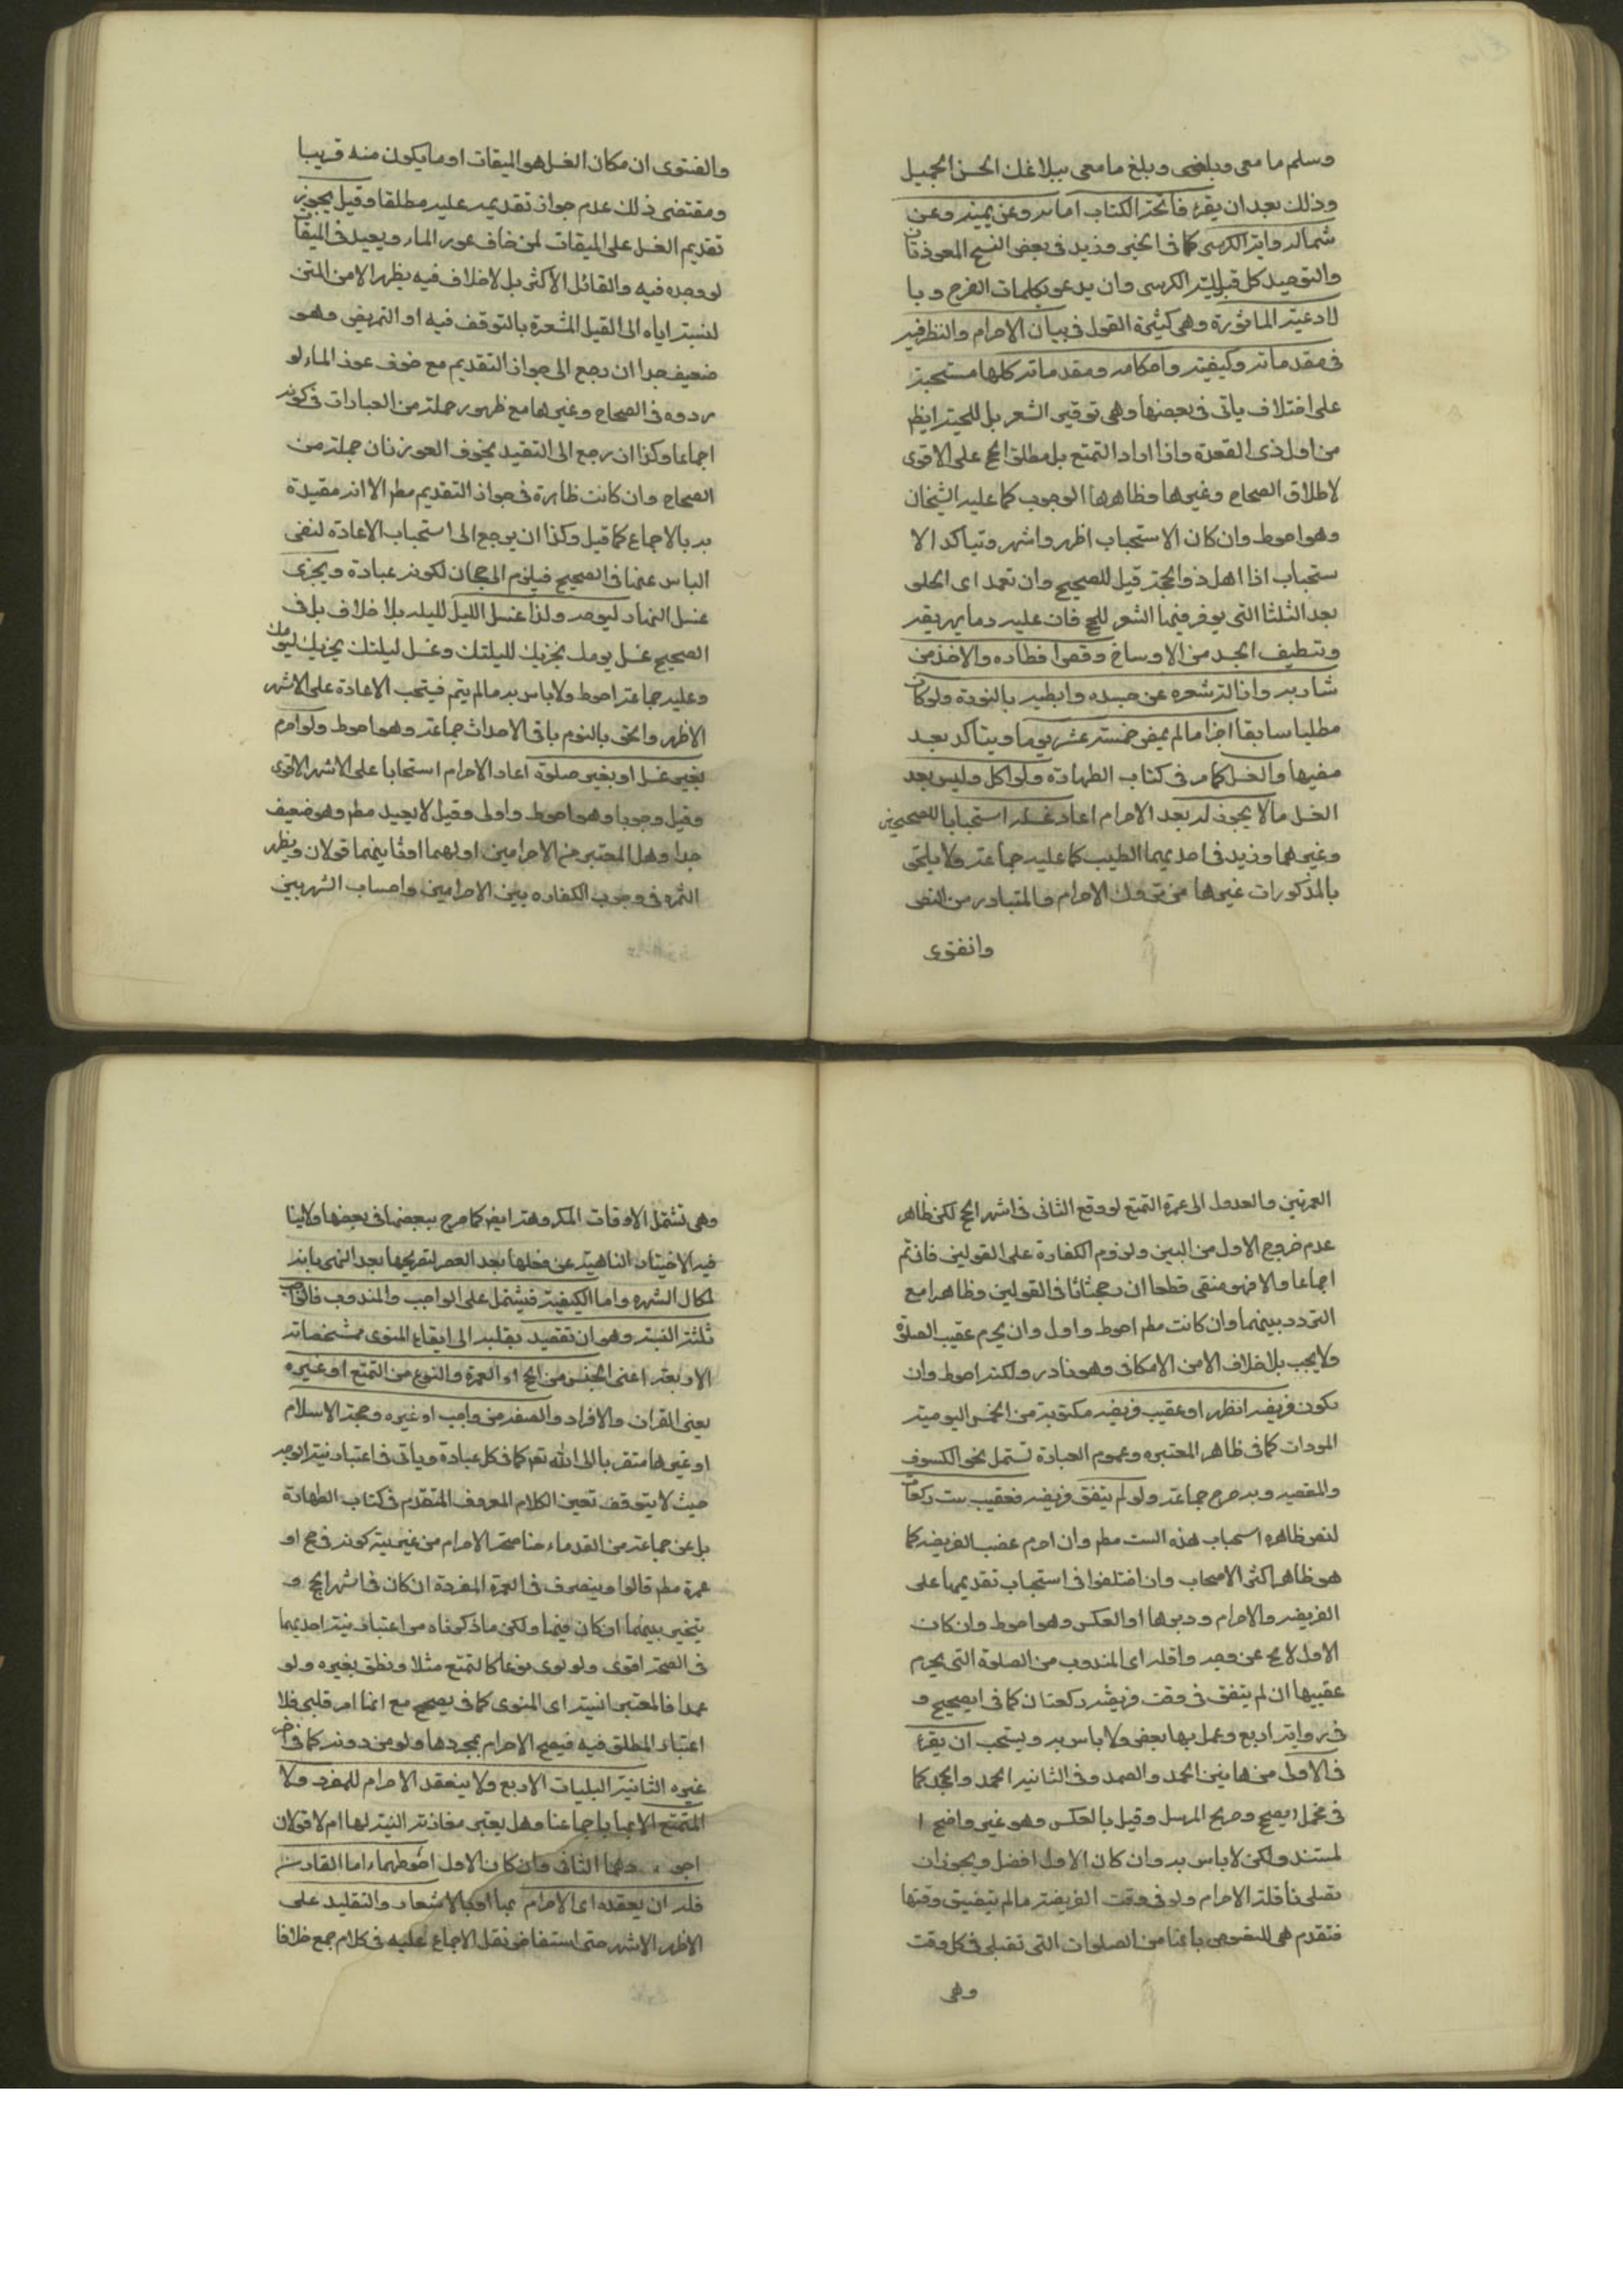 وسلم ما معى وبلغنى وبلغ ما معى ببلاغك الحسن الجميل
وذلك بعد ان يقرء فاتحة الكتاب امامه وعن يمينه وعن
شماله واية الكرسى كما فى الخبر وزيد فى بعض النسخ المعوذتان
والتوحيد كل قبل اية الكرسى وان يدعو بكلمات الفرج وبا
لادعية الماثورة وهى كثيرة القول فى بيان الاحرام والنظر فيه
فى مقدماته وكيفيته واحكامه ومقدماته كلها مستحبة
على اختلاف ياتى فى بعضها وهى توفير الشعر بل للحية ايظم
من اول ذى القعدة واذا اراد التمتع بل مطلق الحج على الاقوى
لاطلاق الصحاح وغيرها وظاهرها الوجوب كما عليه الشيخان
وهو احوط وان كان الاستحباب اظهر واشهر ويتاكد الا
ستحباب اذا اهل ذو الحجة قيل للصحيح وان تعمد اى الحلق
بعد الثلثا التى يوفر فيها الشعر للحج فان عليه دما يهريقه
وتنظيف الجسد من الاوساخ وقص اظفاره والاخذ من
شاربه وازالة شعره عن جسده وابطيه بالنورة ولو كان
مطليا سابقا اجزا ما لم يمض خمسة عشر يوما ويتأكد بعد
مضيها والغسل كما مر فى كتاب الطهارة ولو اكل وليس بعد
الغسل ما لا يجوز له بعد الاحرام اعاد غسله استحبابا للصحيحين
وغيرهما وزيد فى احديهما الطيب كما عليه جماعة ولا يلحق
بالمذكورات غيرها من تروك الاحرام والمتبادر من النص
وانفتوى
والفتوى ان مكان الغسل هو الميقات او ما يكون منه قريبا
ومقتضى ذلك عدم جواز تقديمه عليه مطلقا وقيل يجوز
تقديم الغسل على الميقات لمن خاف عوز الماء ويعيد فى الميقات
لو وجده فيه والقائل الاكثر بل لا خلاف فيه يظهر الا من المتن
لنسبته اياه الى القيل المشعرة بالتوقف فيه او التمريض وهو
ضعيف جدا ان رجع الى جواز التقديم مع خوف عوز الماء لو
روده فى الصحاح وغيرها مع ظهور جملة من العبارات فى كونه
اجماعا وكذا ان رجع الى التقييد بخوف العوز فان جملة من
الصحاح وان كانت ظاهرة فى جواز التقديم مطم الا انه مقيدة
به بالاجماع كما قيل وكذا ان يرجع الى استحباب الاعادة لنفى
الباس عنها فى الصحيح فيلزم الرجحان لكونه عبادة ويجزى
غسل النهار ليومه ولذا غسل الليل لليله بلا خلاف بل فى
الصحيح غسل يومك يجزيك لليلتك وغسل ليلتك يجزيك ليومك
وعليه جماعة احوط ولا باس به ما لم ينم فيتحب الاعادة على الاشهر
الاظهر والحق بالنوم باقى الاحداث جماعة وهو احوط ولو احرم
بغير غسل او بغير صلوة اعاد الاحرام استحبابا على الاشهر الاقوى
وقيل وجوبا وهو احوط واولى وقيل لا يعيد مطم وهو ضعيف
جدا وهل المعتبر من الاحرامين اولهما او ثانيهما قولان ويظهر
الثمرة فى وجوب الكفاره بين الاحرامين واحساب الشهر بين
العمرتين والعدول الى عمرة التمتع لو وقع الثانى فى اشهر الحج لكن ظاهر
عدم خروج الاول من البين ولزوم الكفارة على القولين فان تم
اجماعا والا فهو منفى قطعا ان رجحنا ثانى القولين وظاهرا مع
التردد بينهما وان كانت مطم احوط واول وان يحرم عقيب الصلوة
ولا يجب بلا خلاف الا من الاسكافى وهو نادر ولكنه احوط وان
يكون فريضه الظهر او عقيب فريضه مكتوبة من الخمس اليومية
المودات كما فى ظاهر المعتبره وعموم العبادة تشمل نحو الكسوف
والمقضيه وبه صرح جماعة ولو لم يتفق فريضه فعقيب ست ركعات
لنص ظاهره استحباب هذه الست مطم وان احرم عقب الفريضه كما
هو ظاهر اكثر الاصحاب وان اختلفوا فى استحباب تقديمها على
الفريضه والاحرام ودبرها او العكس وهو احوط وان كان
الاول لا يخ عن وجه واقله اى المندوب من الصلوة التى يحرم
عقيبها ان لم يتفق فى وقت فريضه ركعتان كما فى الصحيح و
فى رواية اربع وعمل بها بعض ولا باس به ويستحب ان يقرء
فى الاولى منهما بين الحمد والصمد وفى الثانيه الحمد والجحد كما
فى محمل الصحيح وصريح المرسل وقيل بالعكس وهو غير واضح ا
لمستند ولكن لا باس به وان كان الاول افضل ويجوز ان
تصلى نافلة الاحرام ولو فى وقت الفريضه ما لم يتضيق وقتها
فتقدم هى للنصوص بانها من الصلوات التى تصلى فى كل وقت
وهى
وهى تشتمل الاوقات المكروهة ايضا كما صرح ببعضها فى بعضها ولا ينا
فيه الاخبار الناهية عن فعلها بعد العصر لتصريحها بعد النهى بانه
لمكان الشهره واما الكيفية فيشتمل على الواجب والمندوب فالواجب
ثلثة النية وهو ان تقصيد بقلبه الى ايقاع المنوى بمشخصاته
الاربعة اعنى الجنس من الحج او العمرة والنوع من التمتع او غيره
يعنى القران والافراد والصفة من واجب او غيره وحجة الاسلام
او غيرها متقربا الى الله تعم كما فى كل عبادة وياتى فى اعتبار نية الوجه
حيث لا يتوقف تعين الكلام المعروف المتقدم فى كتاب الطهارة
بل عن جماعة من القدماء هنا صحة الاحرام من غير نية كونه فى حج او
عمرة مطم قالوا وينصرف فى العمرة المفردة ان كان فى اشهر الحج و
يتخير بينهما ان كان فيها ولكن ما ذكرناه من اعتبار نية احديهما
فى الصحة اقوى ولو نوى نوعا كالتمتع مثلا ونطق بغيره ولو
عمدا فالمعتبر النية اى المنوى كما فى الصحيح مع انها امر قلبى فلا
اعتبار المطلق فيه فيصح الاحرام بمجردها ولو من دونه كما فى
غيره الثانية التلبيات الاربع ولا ينعقد الاحرام للمفرد ولا
المتمتع الا بها باجماعنا وهل يعتبر مقارنة النية لها ام لا قولان
الثانى وان كان الاول احوطهما واما القارن
فله ان يعقده اى الاحرام بها او بالاشعار والتقليد على
الاظهر الاشهر حتى استفاض نقل الاجماع عليه فى كلام جمع خلافا